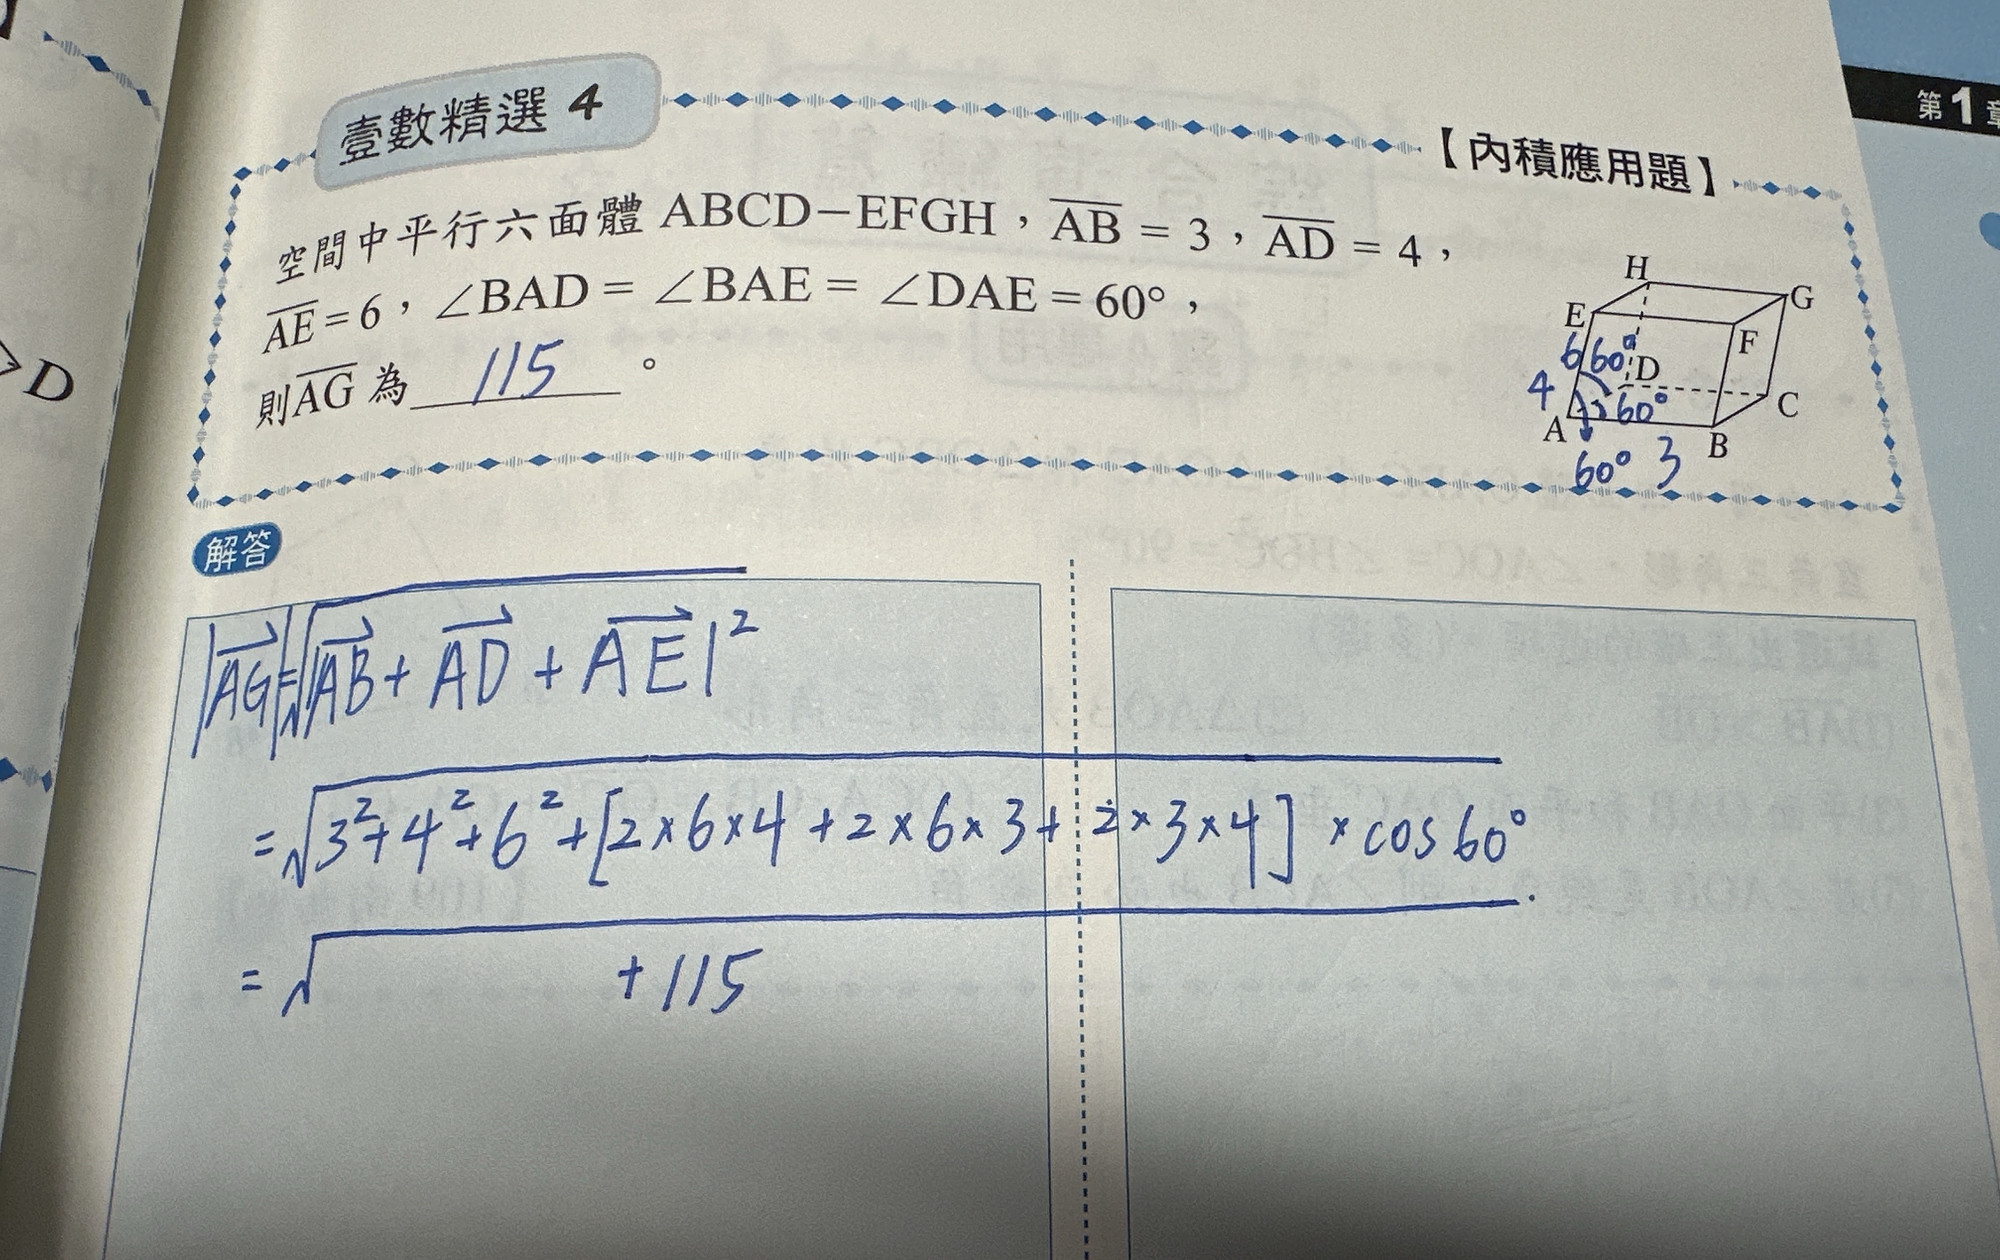 第1章
壹數精選 4
【內積應用題】
空間中平行六面體 ABCD−EFGH，AB = 3，AD = 4，
AE = 6，∠BAD = ∠BAE = ∠DAE = 60°，
則AG 為 115 。
H
G
E
F
6 60°
D
4
60°
C
A
B
60° 3
D
解答
|AG|=√|AB + AD + AE|²
=√3²+4²+6²+[2×6×4+2×6×3+2×3×4] × cos60°
=√ +115